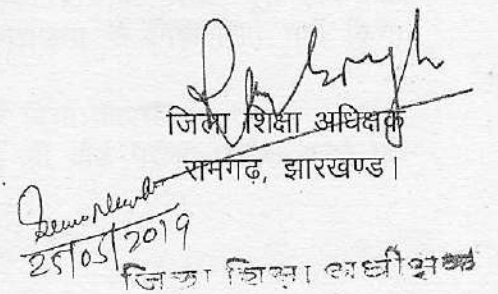 जिला शिक्षा अधिक्षक
रामगढ़, झारखण्ड।
25/05/2019
जिला शिक्षा अधीक्षक